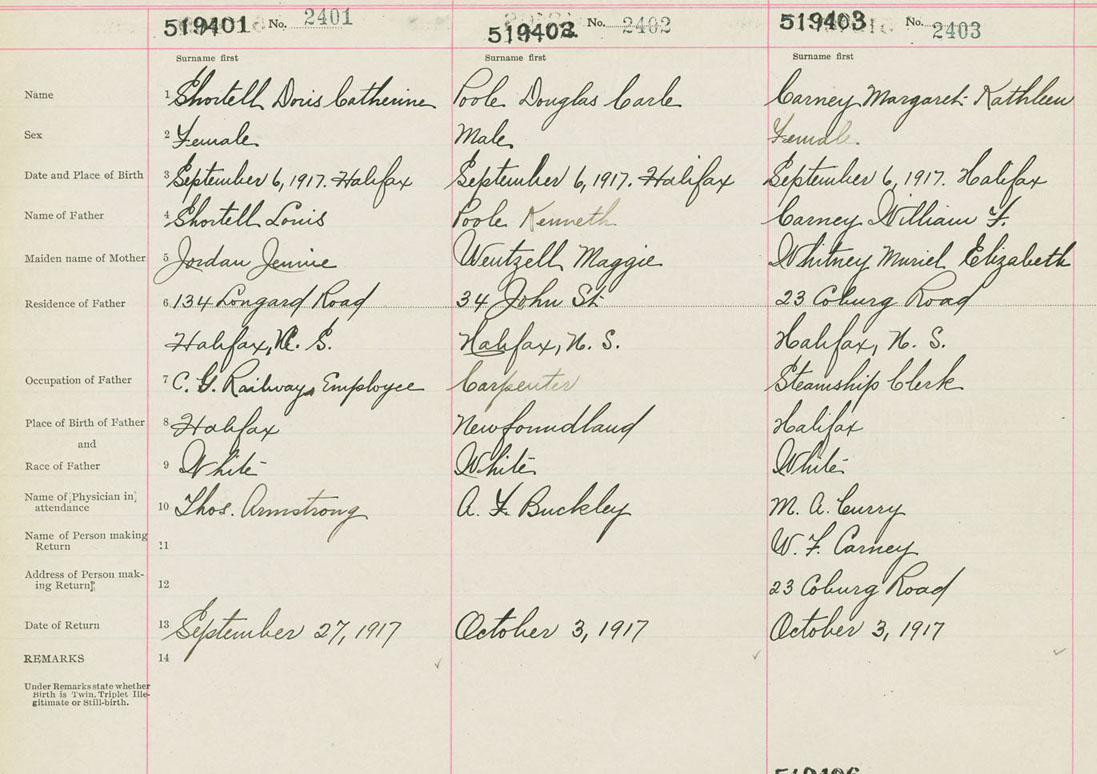 519401 No. 2401
519402 No. 2402
519403 No. 2403
Surname first
Surname first
Surname first
Name 1 Shortell Doris Catherine Poole Douglas Carle Carney Margaret Kathleen
Sex 2 Female Male Female
Date and Place of Birth 3 September 6, 1917. Halifax September 6, 1917. Halifax September 6, 1917. Halifax
Name of Father 4 Shortell Louis Poole Kenneth Carney William F.
Maiden name of Mother 5 Jordan Jennie Wentzell Maggie Whitney Muriel Elizabeth
Residence of Father 6 134 Longard Road 34 John St 23 Coburg Road
Halifax, N. S. Halifax, N. S. Halifax, N. S.
Occupation of Father 7 C. G. Railway Employee Carpenter Steamship Clerk
Place of Birth of Father 8 Halifax Newfoundland Halifax
and
Race of Father 9 White White White
Name of Physician in
attendance 10 Thos. Armstrong A. F. Buckley M. A. Curry
Name of Person making
Return 11 W. F. Carney
Address of Person mak-
ing Return 12 23 Coburg Road
Date of Return 13 September 27, 1917 October 3, 1917 October 3, 1917
REMARKS 14
Under Remarks state whether
Birth is Twin, Triplet Ille-
gitimate or Still-birth.